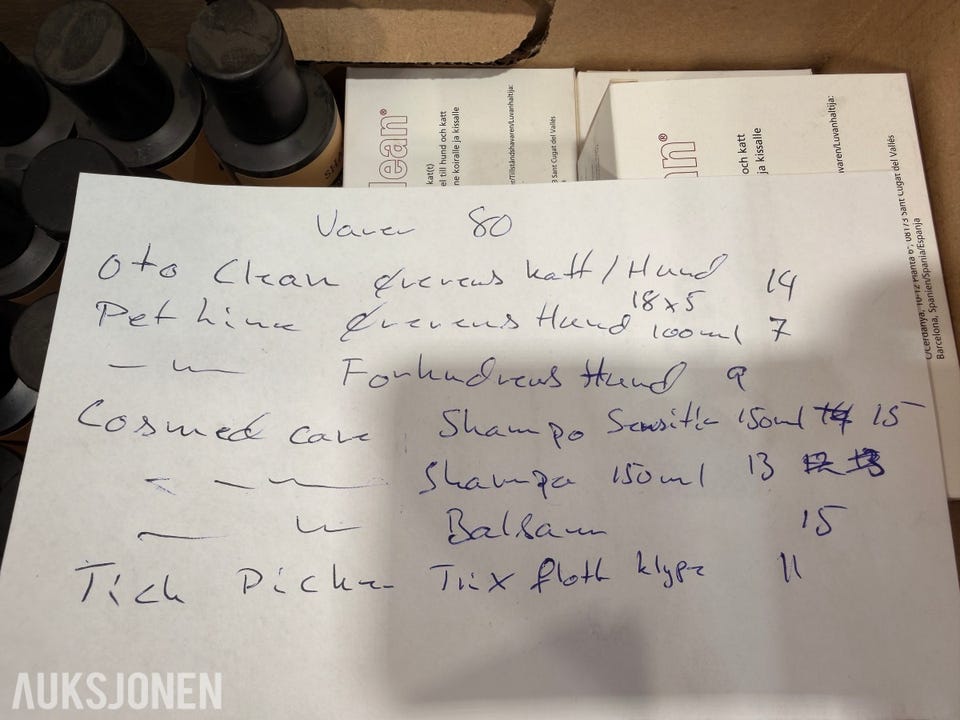 SEN
lean®
kat(t)
el till hund och katt
ne koiralle ja kissalle
er/Tillståndshavaren/Luvanhaltija:
3 Sant Cugat del Vallès
n®
och katt
ja kissalle
waren/Luvanhaltija:
10-12 Planta 6ª, 08173 Sant Cugat del Vallès
Barcelona, Spanien/Spania/Espanja
Varer 80
Oto Clean Ørerens katt/Hund 14
18x5
Pet Line Ørerens Hund 100ml 7
— " — Forhudrens Hund 9
Cosmed care Shampo Sensitiv 150ml 15
— " — Shampo 150ml 13
— " — Balsam 15
Tick Picker Trix flott klype 11
AUKSJONEN